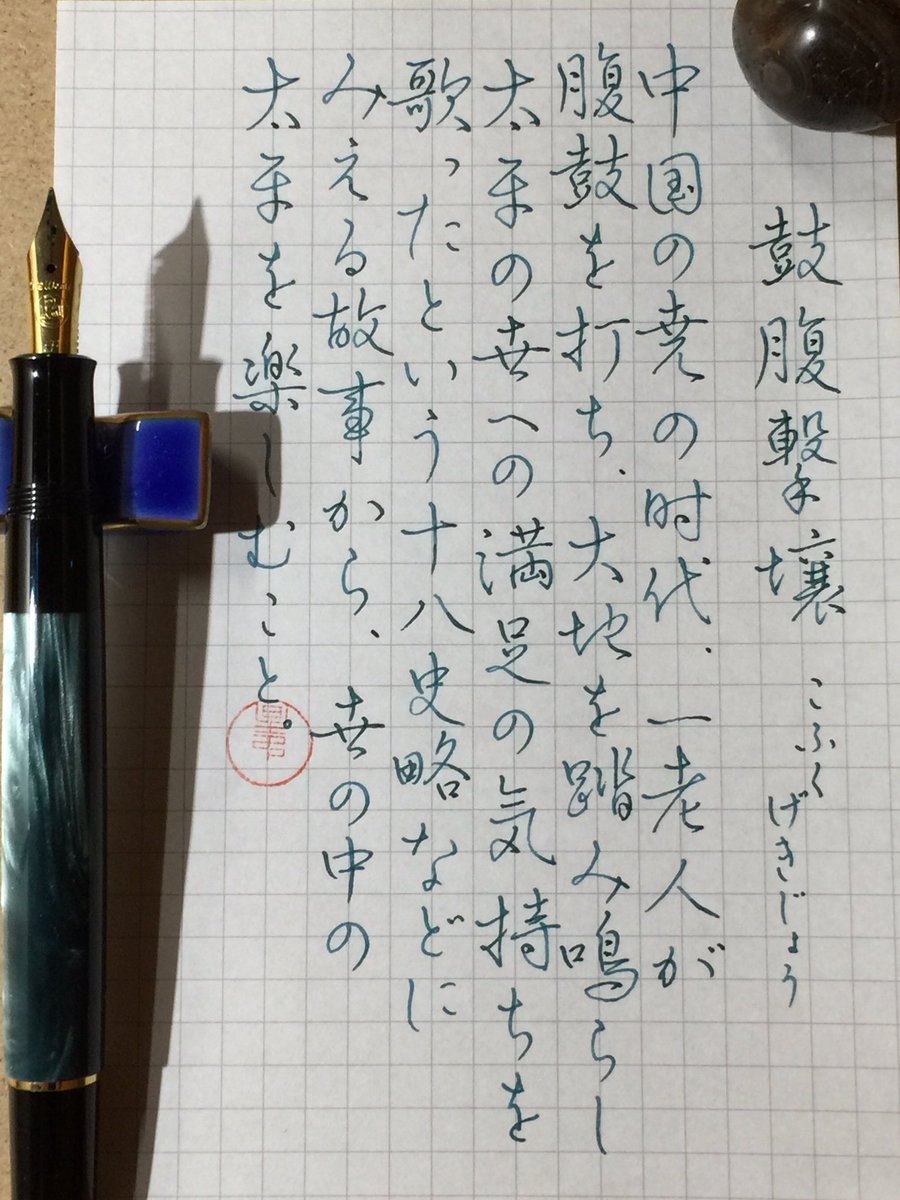 鼓腹撃壌 こふくげきじょう
中国の尭の時代、一老人が
腹鼓を打ち、大地を踏み鳴らし
太平の世への満足の気持ちを
歌ったという十八史略などに
みえる故事から、世の中の
太平を楽しむこと。